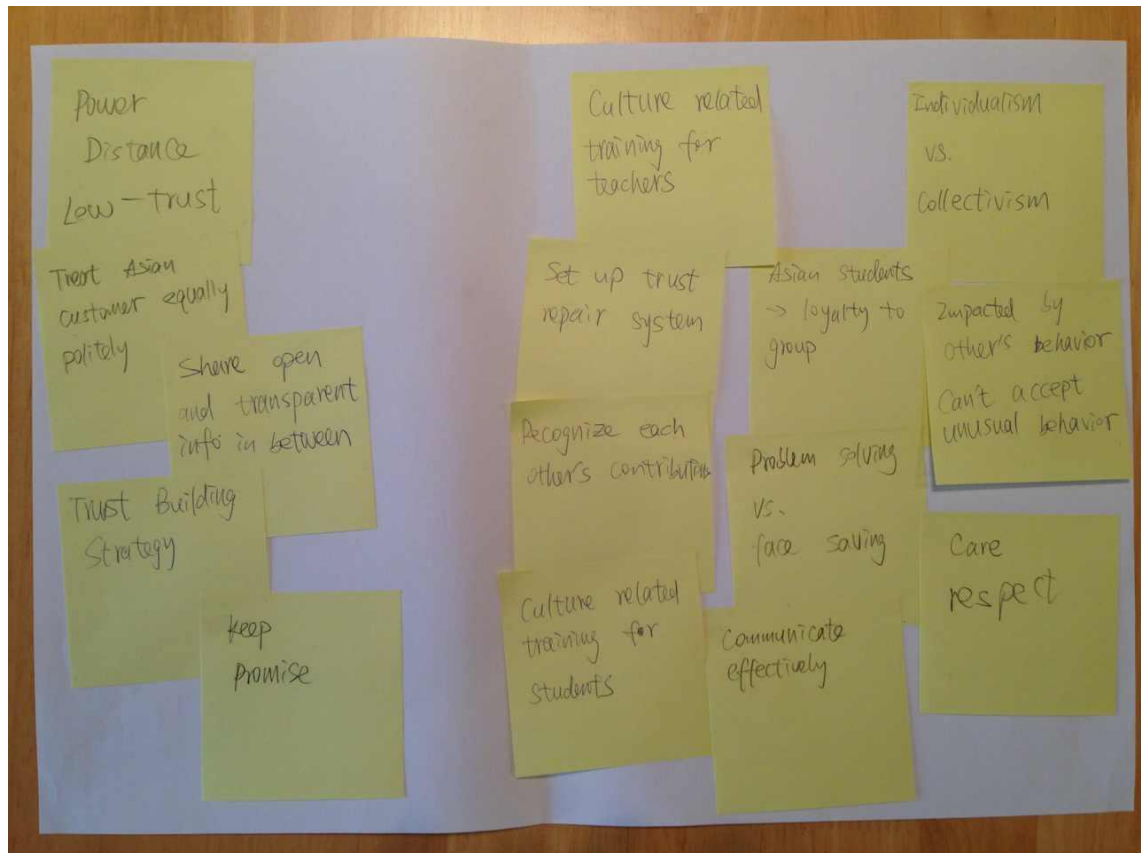 Power
Distance
Low-trust
Treat Asian
customer equally
politely
Share open
and transparent
info in between
Trust Building
Strategy
keep
promise
Culture related
training for
teachers
Set up trust
repair system
Recognize each
other's contributions
Culture related
training for
students
Asian students
→ loyalty to
group
Problem solving
vs.
face saving
Communicate
effectively
Individualism
vs.
Collectivism
Impacted by
other's behavior
Can't accept
unusual behavior
Care
respect